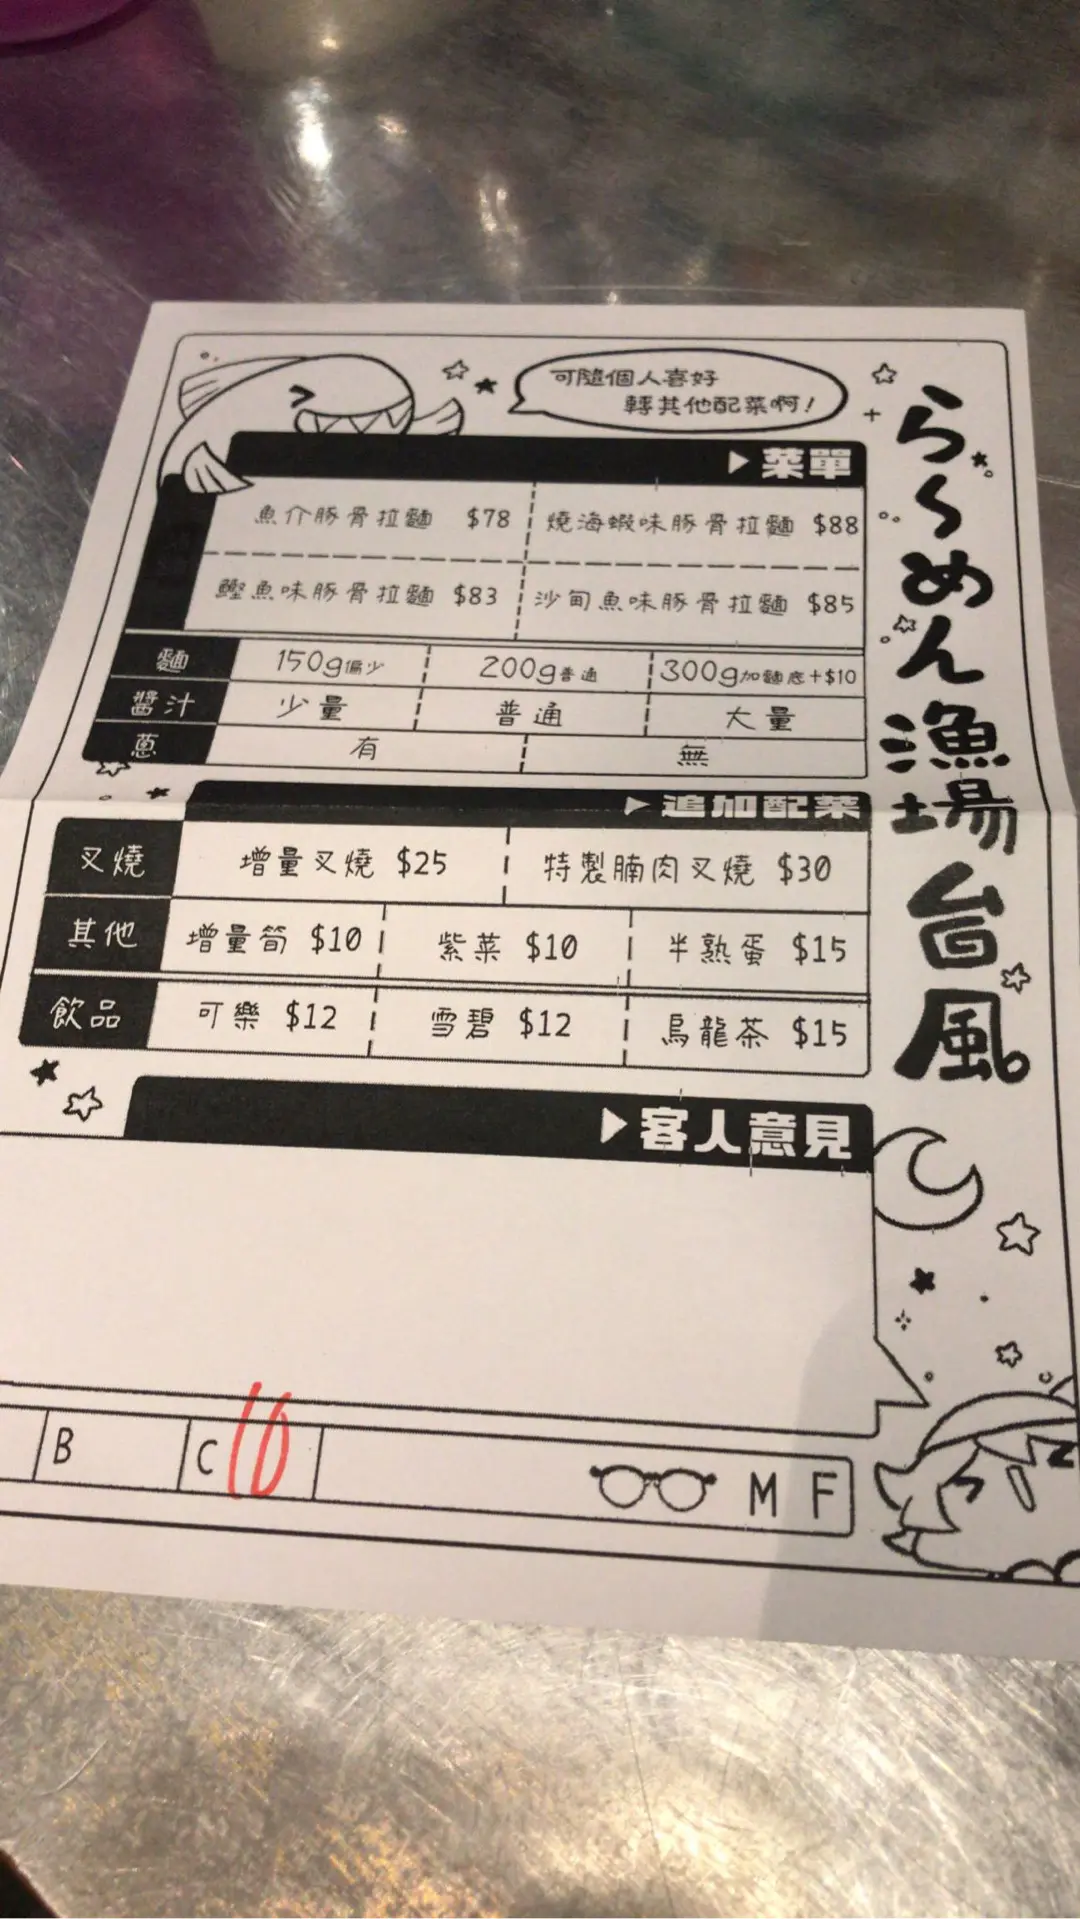 可隨個人喜好
轉其他配菜啊!
らーめん漁場台風
▶菜單
魚介豚骨拉麵 $78 燒海蝦味豚骨拉麵 $88
鰹魚味豚骨拉麵 $83 沙甸魚味豚骨拉麵 $85
麵 150g偏少 200g普通 300g加麵底+$10
醬汁 少量 普通 大量
蔥 有 無
▶追加配菜
叉燒 增量叉燒 $25 特製腩肉叉燒 $30
其他 增量筍 $10 紫菜 $10 半熟蛋 $15
飲品 可樂 $12 雪碧 $12 烏龍茶 $15
▶客人意見
B C 10 M F